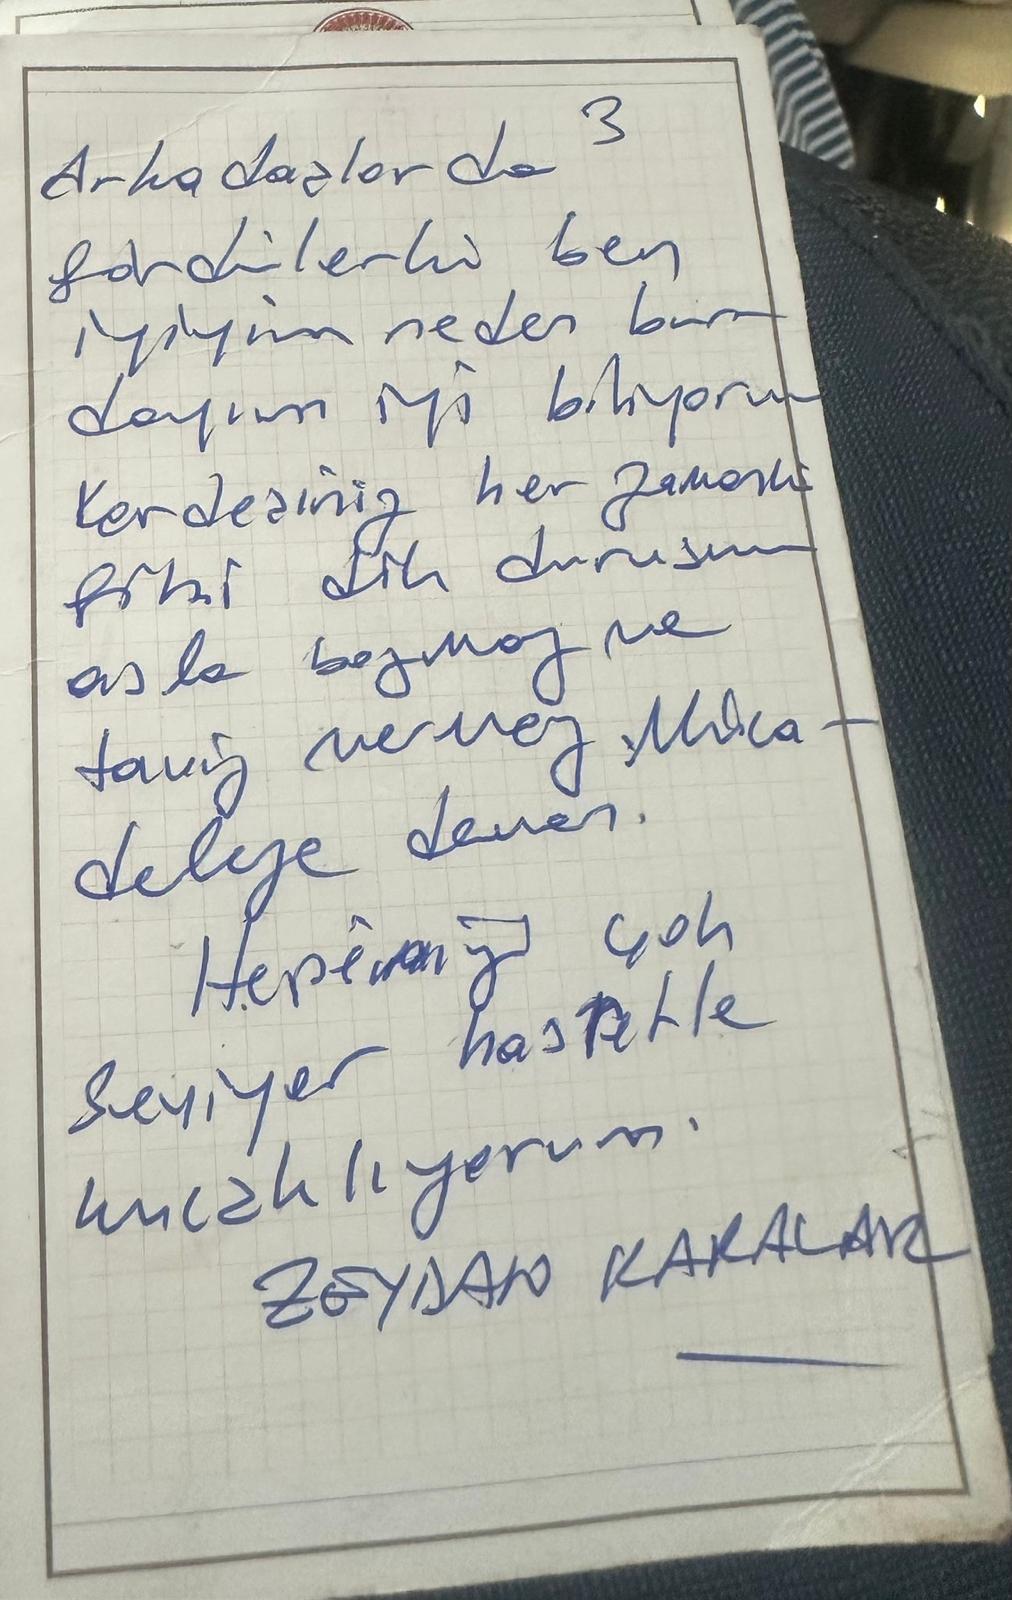 3
Arkadaşlarda
gördülerki ben
iyiyim neden bura
dayım iyi biliyorum
Kardeşiniz her zamanki
gibi dik duruşunu
asla bozmaz ve
taviz vermez, Müca-
deleye devam.
Hepinizi çok
seviyor hasretle
kucaklıyorum.
ZEYDAN KARALAR